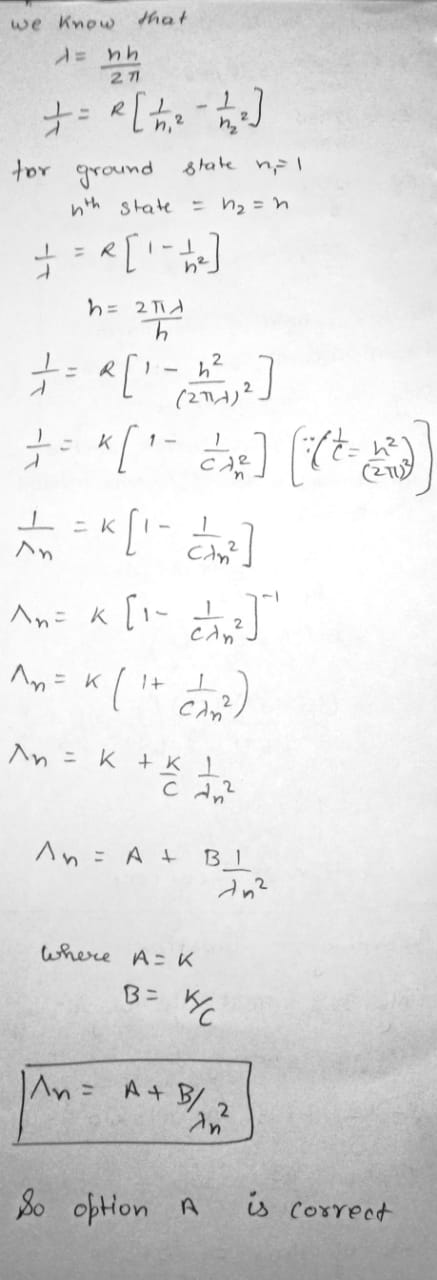 we know that
λ = nh/2π
1/λ = R[1/n₁² - 1/n₂²]
for ground state n₁=1
nth state = n₂ = n
1/λ = R[1 - 1/n²]
n = 2πλ/h
1/λ = R[1 - h²/(2πλ)²]
1/λ = K[1 - 1/Cλn²] (∵(1/C = h²/(2π)²)]
1/Λn = K[1 - 1/Cλn²]
Λn = K[1 - 1/Cλn²]⁻¹
Λn = K(1 + 1/Cλn²)
Λn = K + K/C 1/λn²
Λn = A + B 1/λn²
where A = K
B = K/C
Λn = A + B/λn²
So option A is correct